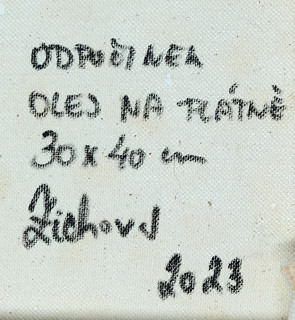 ODPOČINEK
OLEJ NA PLÁTNĚ
30 x 40 cm
Zichová
2023